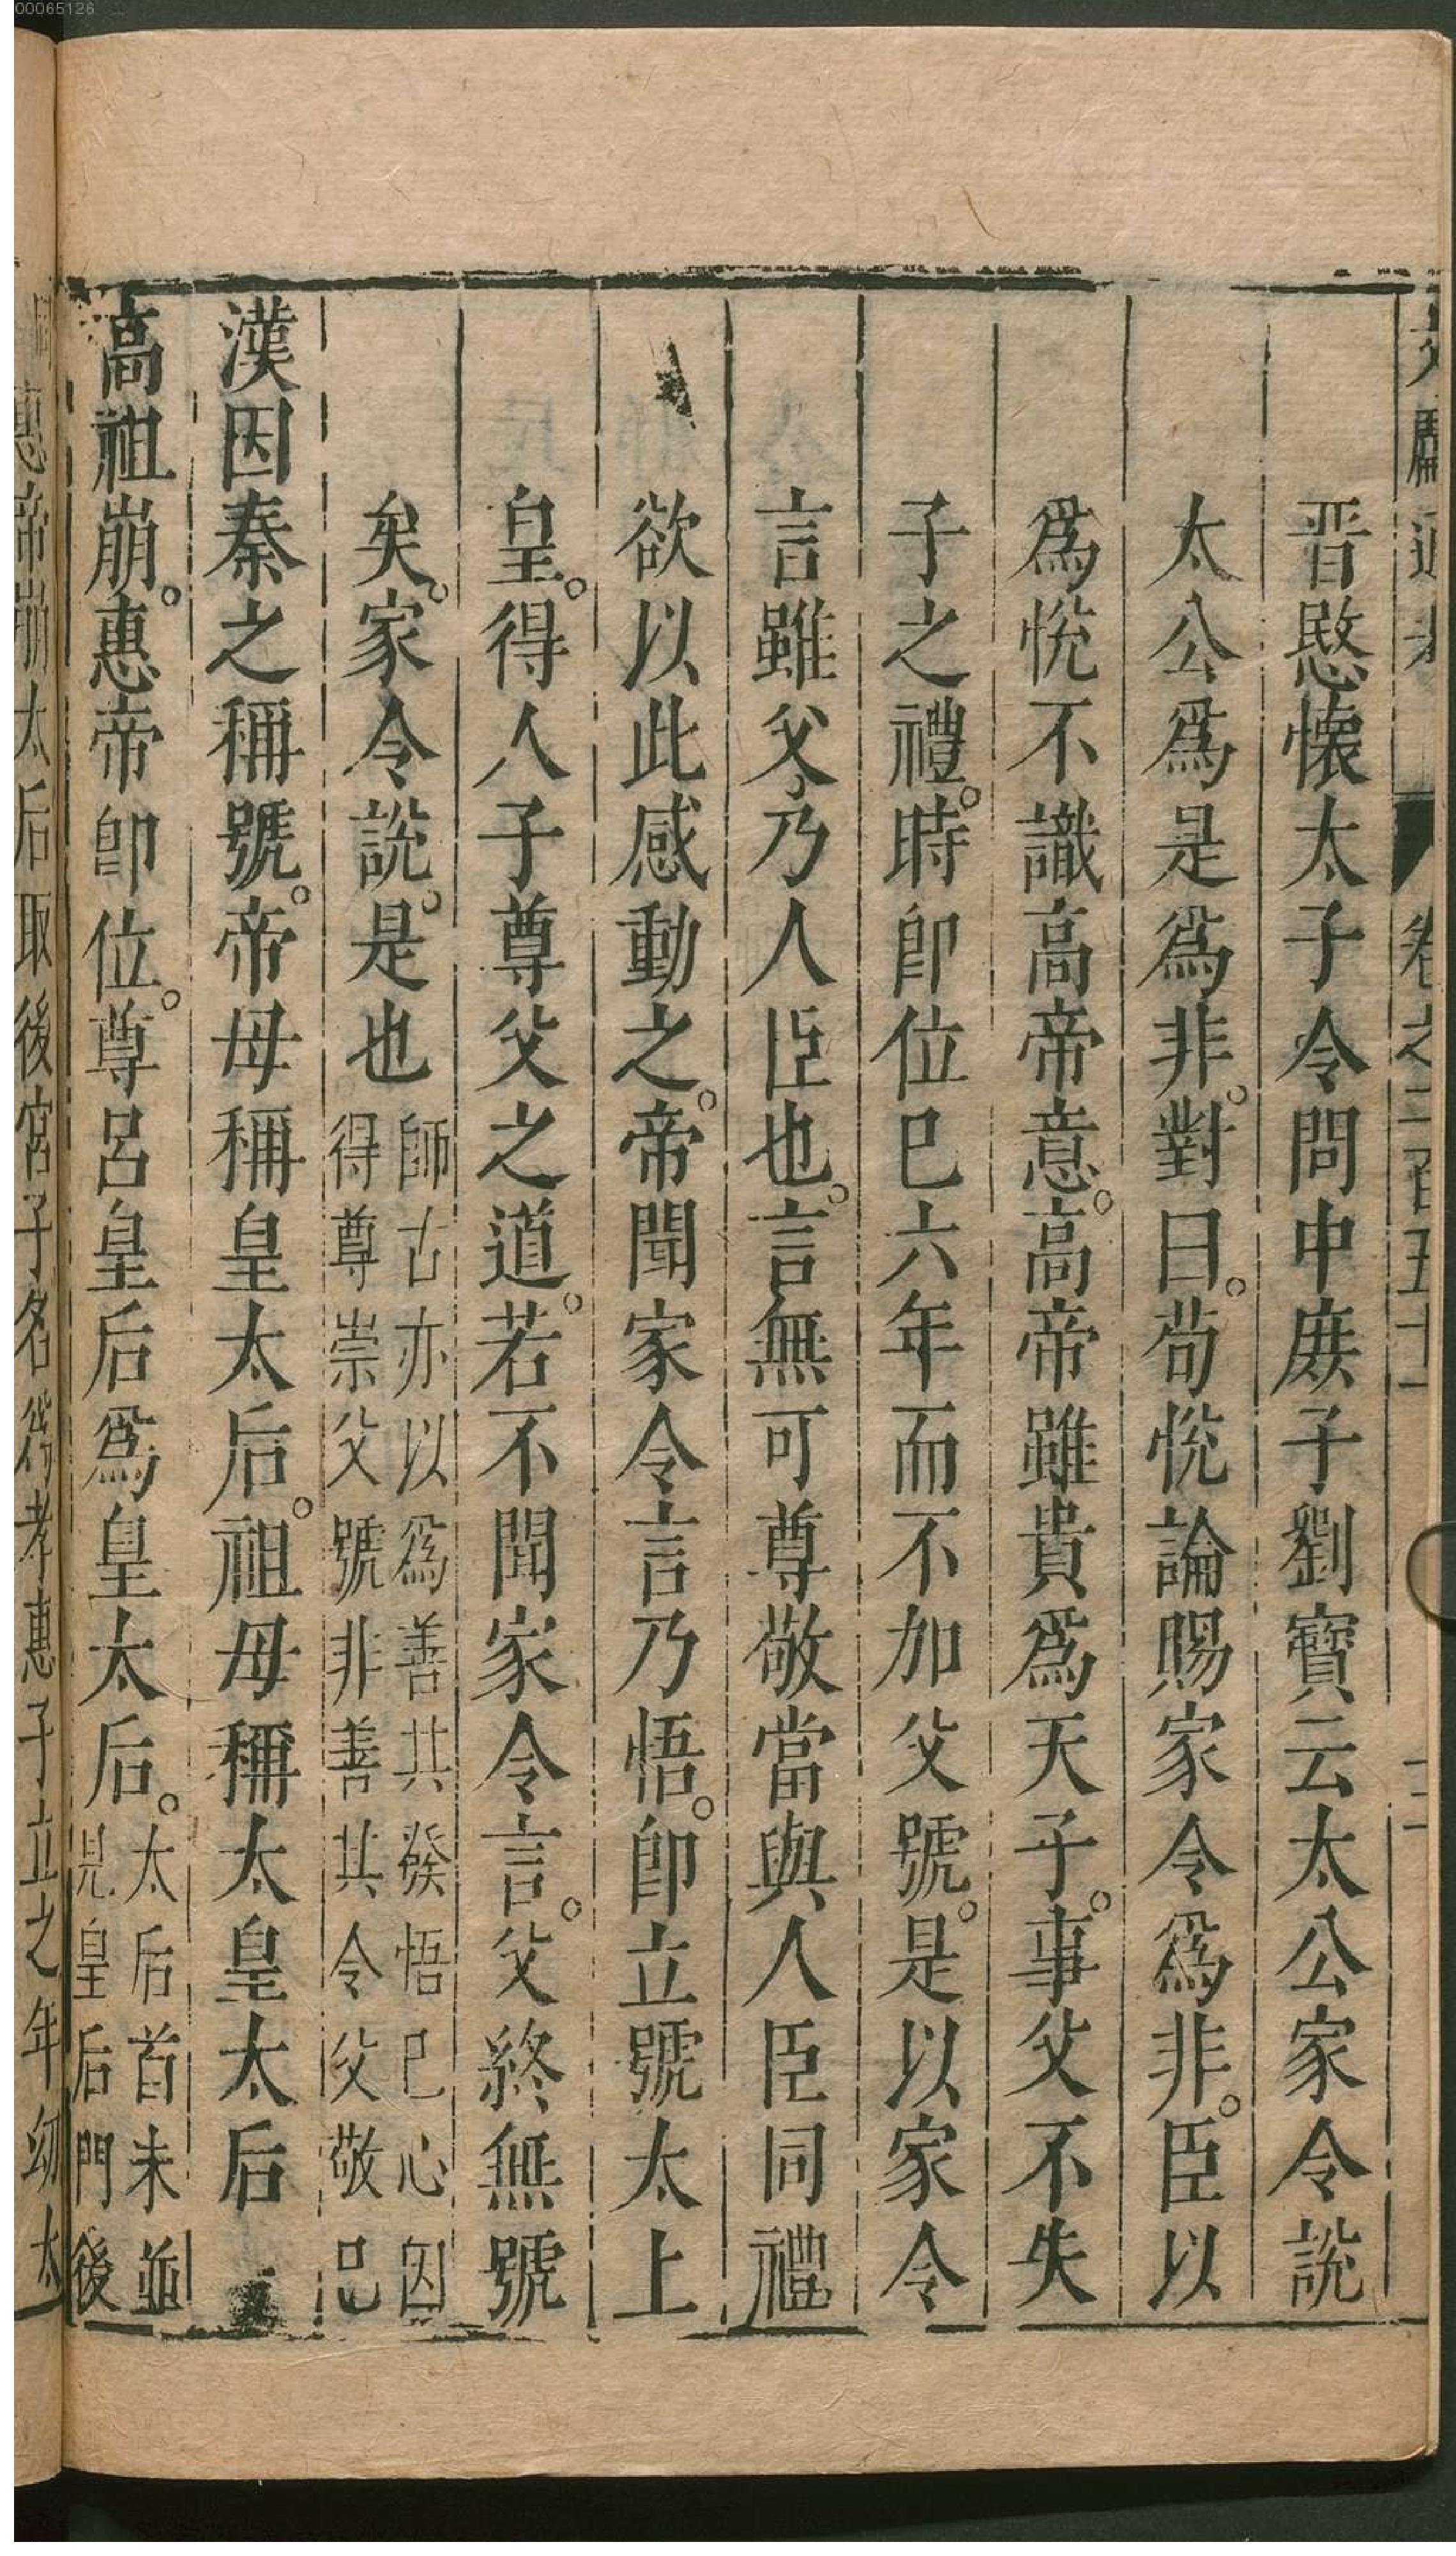 00065126
文獻通考 卷之二百五十一
晉愍懷太子令問中庶子劉寶云太公家令說
太公爲是爲非對曰茍悅論賜家令爲非臣以
爲悅不識高帝意高帝雖貴爲天子事父不失
子之禮時卽位已六年而不加父號是以家令
言雖父乃人臣也言無可尊敬當與人臣同禮
欲以此感動之帝聞家令言乃悟卽立號太上
皇得人子尊父之道若不聞家令言父終無號
矣家令說是也
師古亦以爲善共發悟己心因
得尊崇父號非善其令父敬己
漢因秦之稱號帝母稱皇太后祖母稱太皇太后
高祖崩惠帝卽位尊呂皇后爲皇太后
太后首未並
見皇后門後
惠帝崩太后取後宮子名爲孝惠子立之年幼太